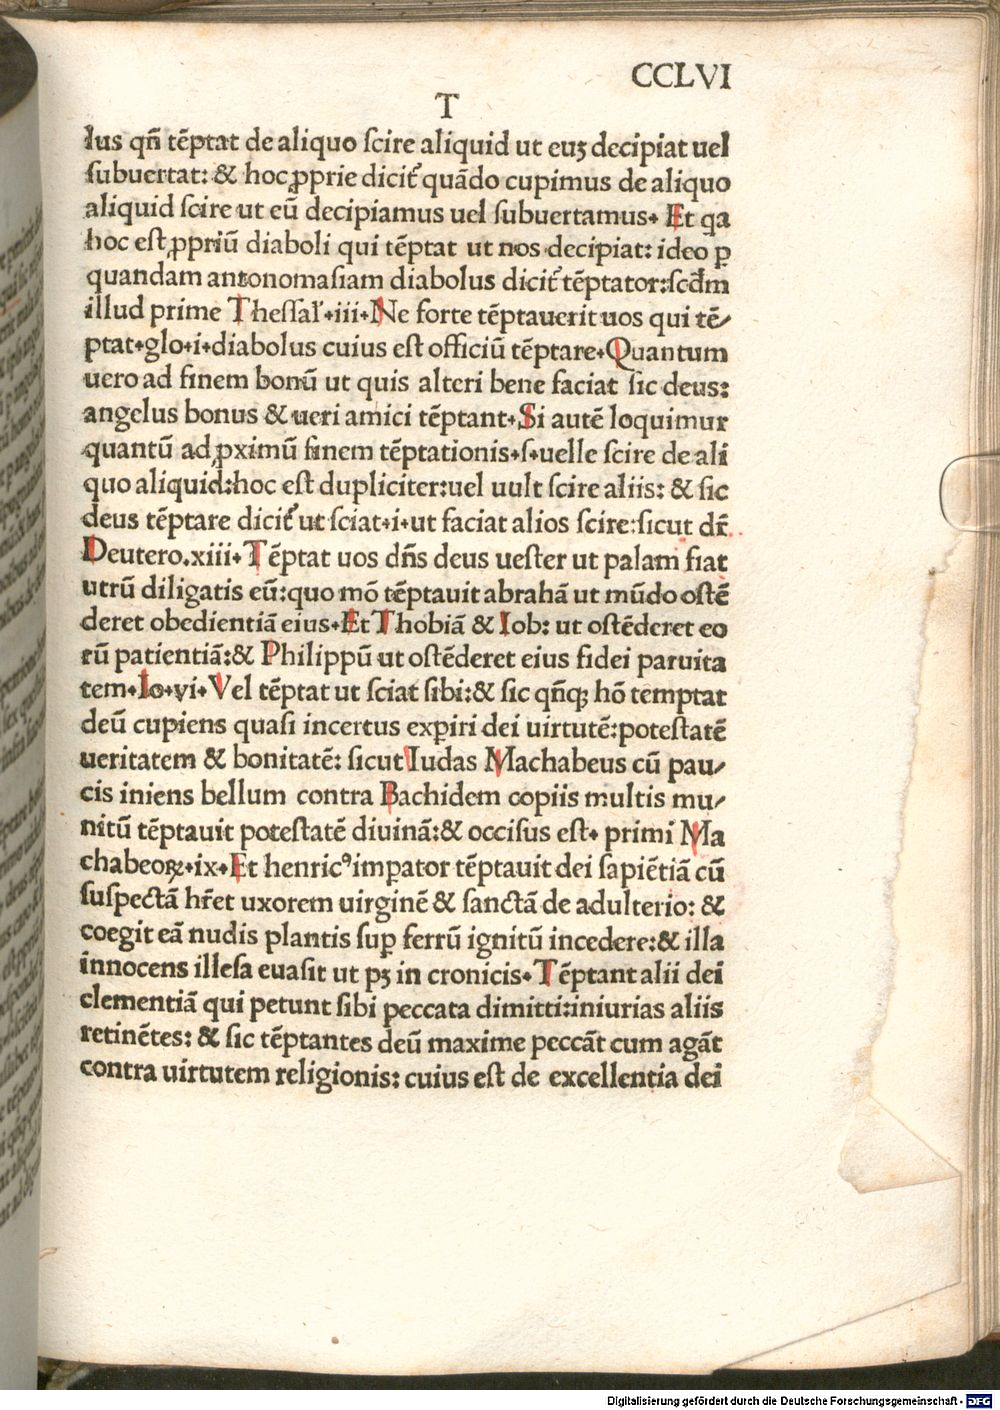 CCLVI
T
lus qñ tẽptat de aliquo ſcire aliquid ut euꝫ decipiat uel
ſubuertat: & hoc ꝓprie dicit᷑ quãdo cupimus de aliquo
aliquid ſcire ut eũ decipiamus uel ſubuertamus. Et qa
hoc eſt ꝓpriũ diaboli qui tẽptat ut nos decipiat: ideo ꝑ
quandam antonomaſiam diabolus dicit᷑ tẽptator:ſcd̃m
illud prime Theſſal̓.iii.Ne forte tẽptauerit uos qui tẽ⸗
ptat.glo.i.diabolus cuius eſt officiũ tẽptare.Quantum
uero ad finem bonũ ut quis alteri bene faciat ſic deus:
angelus bonus & ueri amici tẽptant.Si autẽ loquimur
quantũ ad ꝓximũ finem tẽptationis.ſ.uelle ſcire de ali
quo aliquid:hoc eſt dupliciter:uel uult ſcire aliis: & ſic
deus tẽptare dicit᷑ ut ſciat.i.ut faciat alios ſcire:ſicut dr̃.
Deutero.xiii.Tẽptat uos dñs deus ueſter ut palam fiat
utrũ diligatis eũ:quo mõ tẽptauit abrahã ut mũdo oſtẽ
deret obedientiã eius.Et Thobiã & Iob: ut oſtẽderet eo
rũ patientiã:& Philippũ ut oſtẽderet eius fidei paruita
tem.Io.vi.Vel tẽptat ut ſciat ſibi:& ſic qñqꝫ hõ temptat
deũ cupiens quaſi incertus exꝑiri dei uirtutẽ:poteſtatẽ
ueritatem & bonitatẽ: ſicut Iudas Machabeus cũ pau⸗
cis iniens bellum contra Bachidem copiis multis mu⸗
nitũ tẽptauit poteſtatẽ diuinã:& occiſus eſt. primi Ma
chabeoꝝ.ix.Et henricꝰ imꝑator tẽptauit dei ſapiẽtiã cũ
ſuſpectã hr̃et uxorem uirginẽ & ſanctã de adulterio: &
coegit eã nudis plantis ſuꝑ ferrũ ignitũ incedere:& illa
innocens illeſa euaſit ut pꝫ in cronicis. Tẽptant alii dei
clementiã qui petunt ſibi peccata dimitti:iniurias aliis
retinẽtes: & ſic tẽptantes deũ maxime peccãt cum agãt
contra uirtutem religionis: cuius eſt de excellentia dei
Digitalisierung gefördert durch die Deutsche Forschungsgemeinschaft - DFG